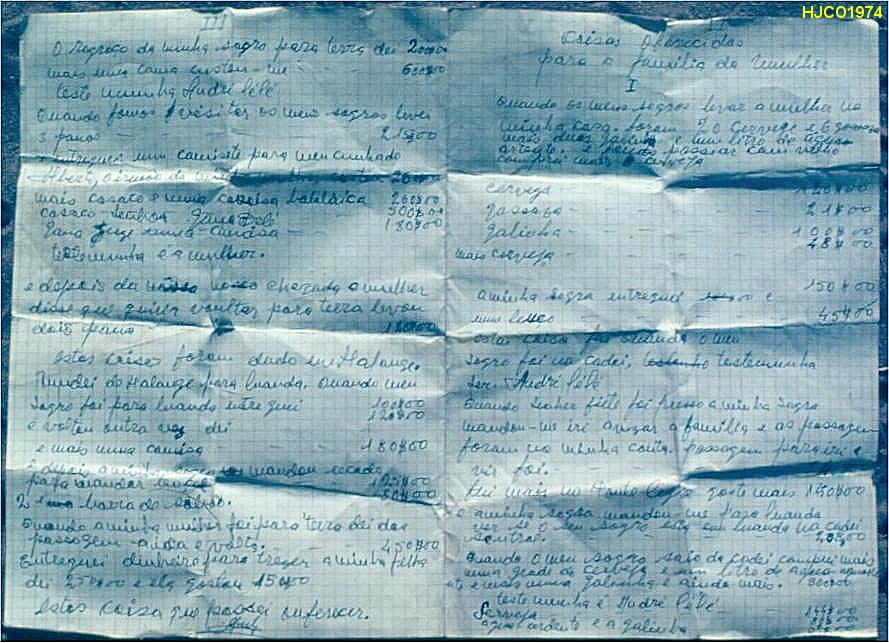 HJCO1974
III
O Regreço da minha sagro para terra dei 200$00
mais uma cama custou-me 600$00
teste munha André Lélé
Quando fomos visitar os meus sogros levei
3 panos - 215$00
entreguei um camisete para meu cunhado
mais casaco e uma camisa balalaica 260$00
casaco 500$00
Para camisa - 180$00
testemunha é a mulher.
e depois da chegada a mulher
disse que quier voultar para terra levou
dois pano 180$00
Estas coisas foram dado em Malange.
Mandei de Malange para Luanda. Quando meu
sogro foi para Luanda entreguei 100$00
e voltou outra vez dei 120$00
e mais uma camisa - 180$00
mandou recado
para mandar
2 barra de sabão.
Quando a minha mulher foi para terra dei das
passagem - aida e volta. - 450$00
Entreguei dinheiro para trazer a minha filha
dei 250$00 e ela gastou 150$00
Estas coisa que passei a oferecer.
Coisas Oferecidas
para a família da mulher
I
Quando os meus sogros levar a mulher na
minha casa foram 20 cerveja e 6 gassosa
mais duas galinha e um litro de agua
ardente e quando passiar com velho
comprei mais 8 cerveja
cerveja - 120$00
gassosa - 21$00
galinha - 100$00
mais cerveja - 48$00
a minha sogra entreguei e 150$00
um lenço - 45$00
estas coisa foi quando o meu
sogro foi na cadei, testemunha
ser. André Lélé
Quando senhor fiete foi presso a minha sogra
mandou-me iri avizar a familha e as passagem
foram na minha conta. passagem para iri e
vir foi.
Fui mais no gaste mais 150$00
e a minha sogra mandou-me para Luanda
ver se o seu sogro está em Luanda na cadei
sentral. - 200$00
Quando o meu sogro saio da cadei comprei mais
uma gradi de cerveja e um litro de agua
e mais uma galinha e ainda mais. 300$00
testemunha é André Lélé
Serveja
agua ardente e a galinha